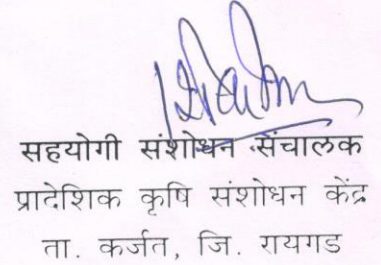 सहयोगी संशोधन संचालक
प्रादेशिक कृषि संशोधन केंद्र
ता. कर्जत, जि. रायगड